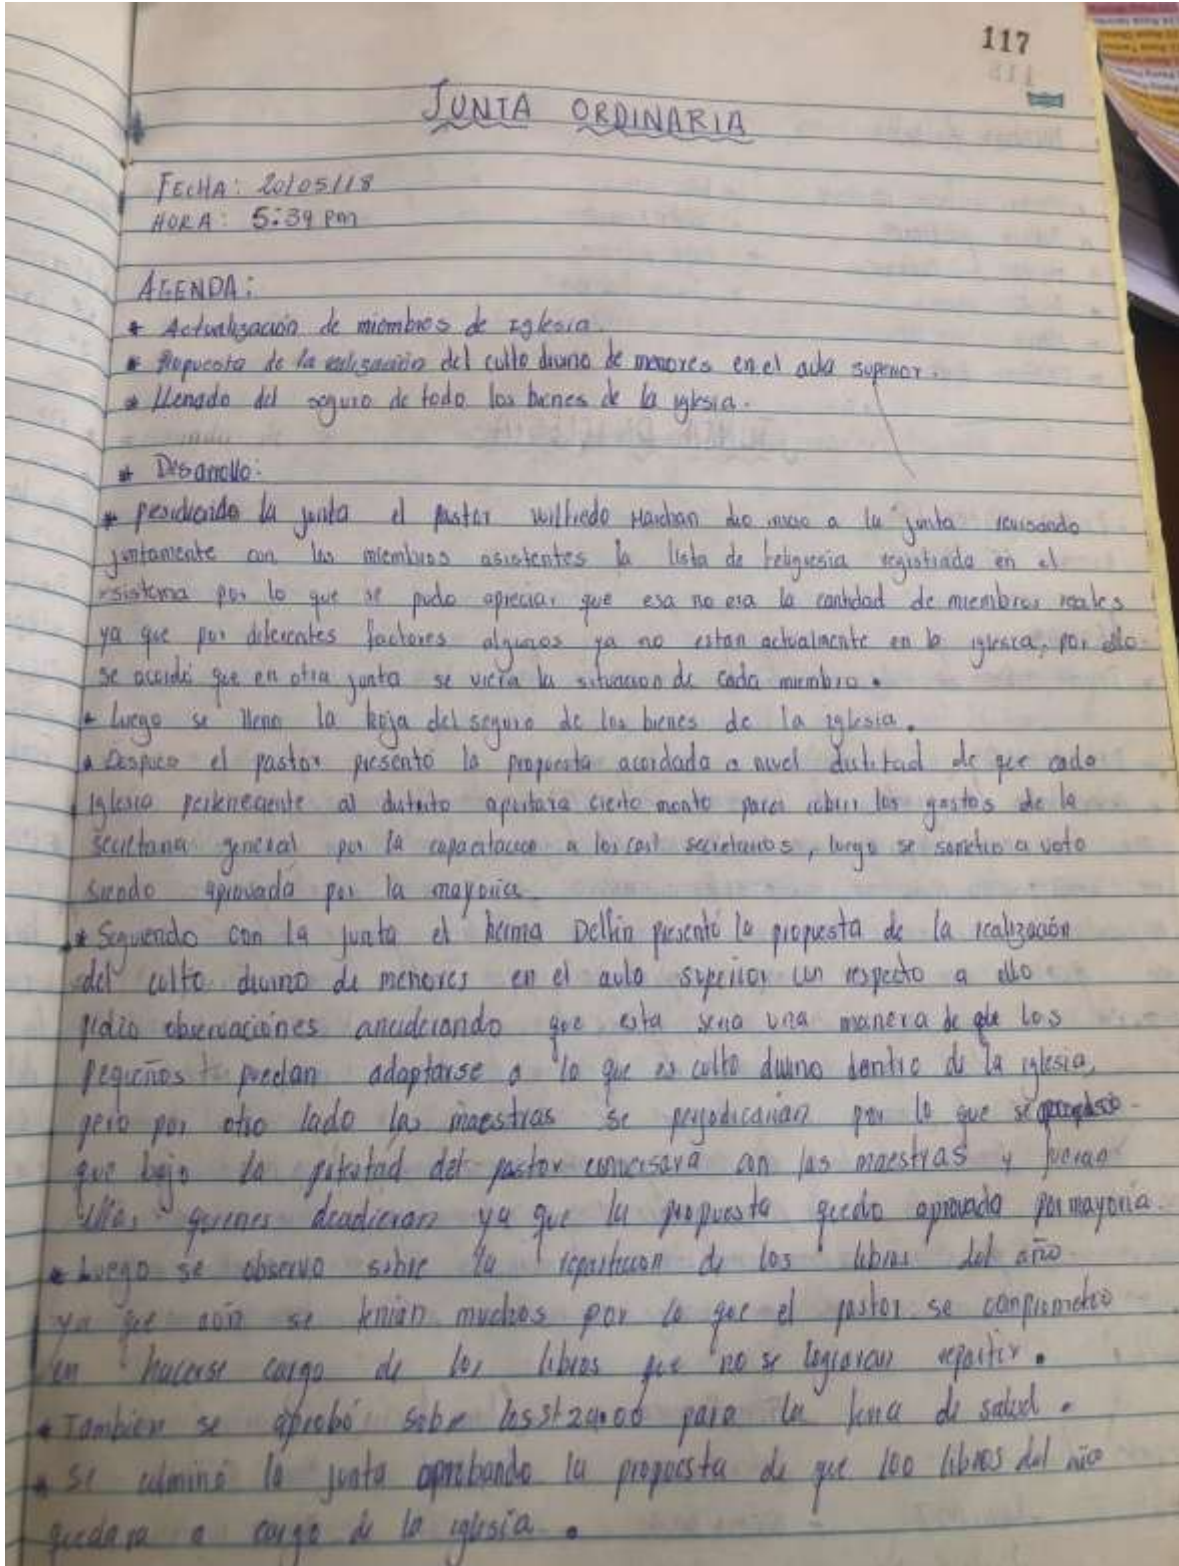 117
JUNTA ORDINARIA
FECHA: 20/05/18
HORA: 5:39 pm
AGENDA:
* Actualización de miembros de Iglesia.
* Propuesta de la realización del culto divino de menores en el aula superior.
* Llenado del seguro de todo los bienes de la iglesia.
* Desarrollo:
* presidiendo la junta el pastor Wilfredo Marchan dio inicio a la junta revisando
juntamente con los miembros asistentes la lista de feligresia registrada en el
sistema por lo que se pudo apreciar que esa no era la cantidad de miembros reales
ya que por diferentes factores algunos ya no estan actualmente en la iglesia, por ello
se acordó que en otra junta se viera la situacion de cada miembro.
* Luego se lleno la hoja del seguro de los bienes de la iglesia.
* Despues el pastor presentó la propuesta acordada a nivel distrital de que cada
iglesia perteneciente al distrito aportara cierto monto para cubrir los gastos de la
secretaria general por la capacitacion a los secretarios, luego se a voto
siendo aprovada por la mayoria.
* Seguiendo con la junta el Delfin presentó la propuesta de la realización
del culto divino de menores en el aula superior con respecto a ello
pidio observaciones que esta seria una manera de que los
pequeños puedan adaptarse a lo que es culto divino dentro de la iglesia,
pero por otro lado las maestras se perjudicarian por lo que se
que bajo la potestad del pastor conversara con las maestras y fueran
ellas quienes decidieran ya que la propuesta quedo aprovada por mayoria.
* Luego se observo sobre la reparticion de los libros del año
ya que aún se tenian muchos por lo que el pastor se comprometio
en hacerse cargo de los libros que no se lograran repartir.
* Tambien se aprobó sobre los para la feria de salud.
* Se culminó la junta aprobando la propuesta de que 100 libros del año
quedara a cargo de la iglesia.